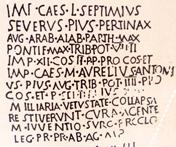 IMP CAES L SEPTIMIVS
SEVERVS PIVS PERTINAX
AVG ARAB ADIAB PARTH MAX
PONTIF MAX TRIB POT VIIII
IMP XII COS II PP PROCOS ET
IMP CAES M AVRELIVS ANTONI
VS PIVS AVG TRIB POT IIII PRO
COS ET P
MILIARIA VETVSTATE COLLAPSA
RESTITVERVNT CVRA AGENTE
M IVVENTIO SVRO PROCLO
LEG PR PR AB AC